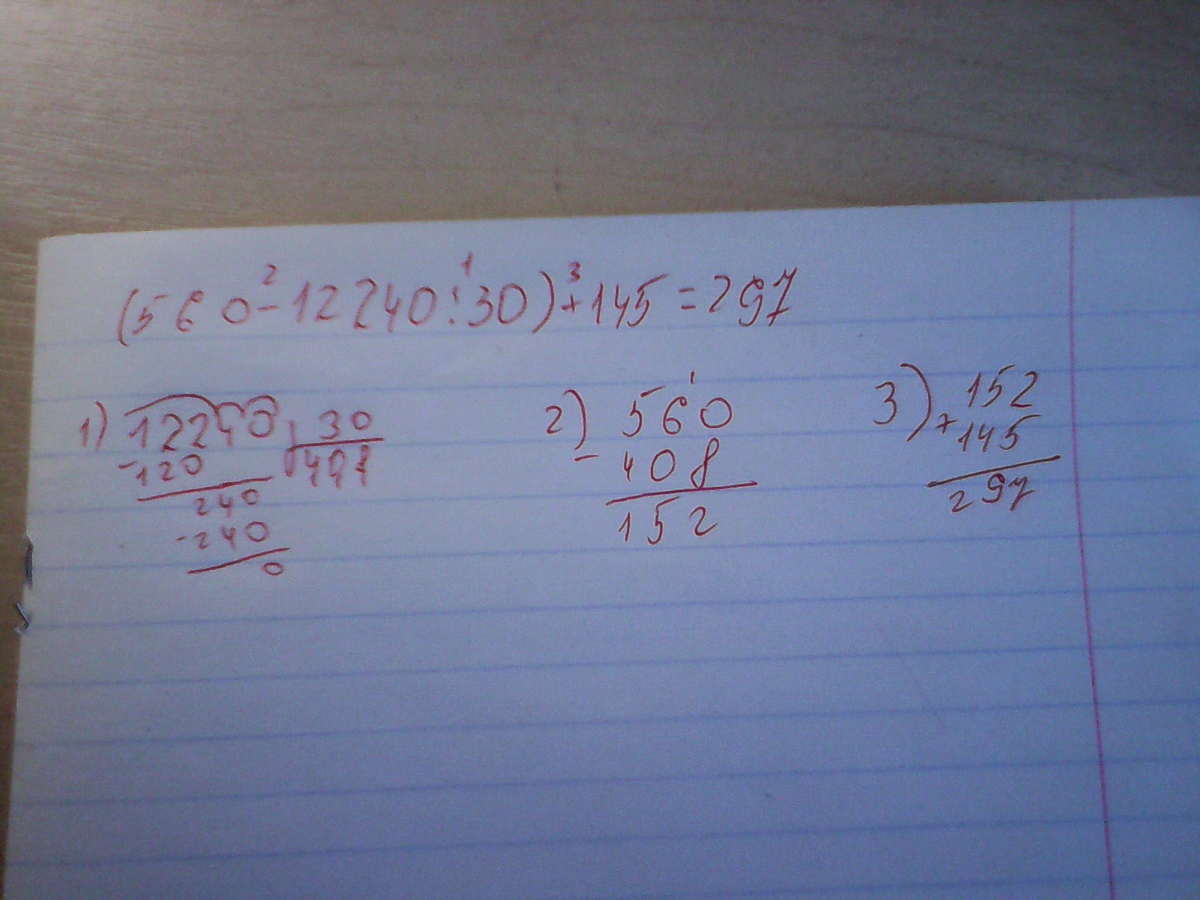 (560-12240:30)+145=297
2 1 3
1) 12240 30
-120 408
240
-240
0
2) 560
- 408
152
3) 152
+ 145
297